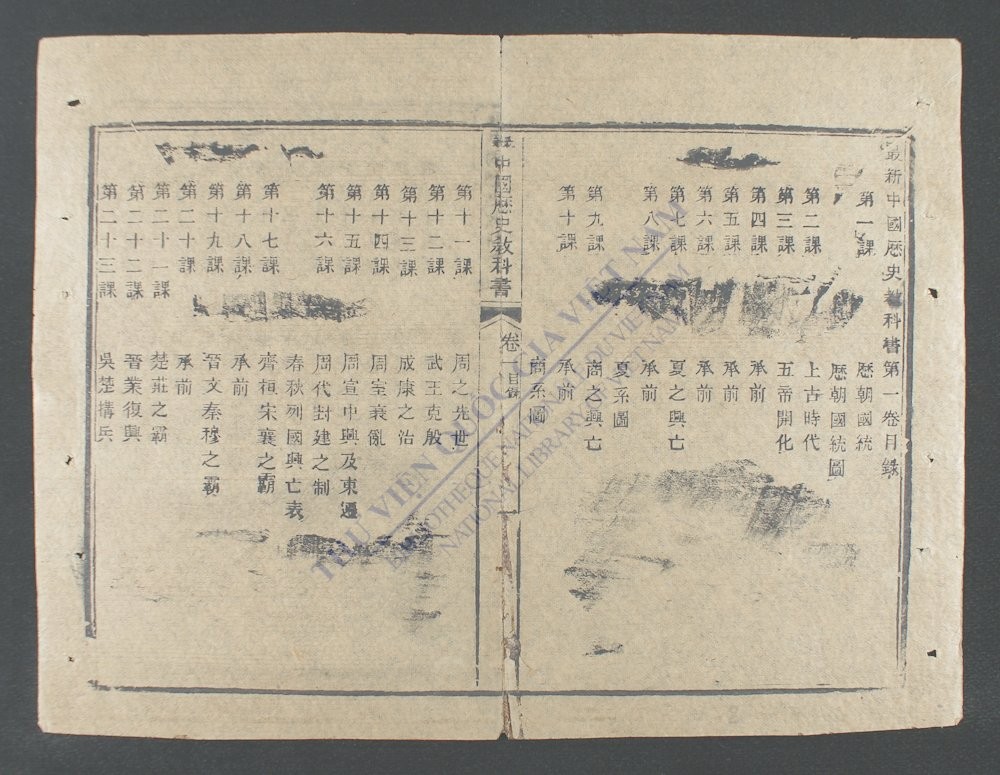 最新中國歷史教科書第一卷目錄
第一課 歷朝國統
歷朝國統圖
第二課 上古時代
第三課 五帝開化
第四課 承前
第五課 承前
第六課 承前
第七課 夏之興亡
第八課 承前
夏系圖
第九課 商之興亡
第十課 承前
商系圖
中國歷史教科書 卷一目錄
第十一課 周之先世
第十二課 武王克殷
第十三課 成康之治
第十四課 周室衰亂
第十五課 周宣中興及東遷
第十六課 周代封建之制
春秋列國興亡表
第十七課 齊桓宋襄之霸
第十八課 承前
第十九課 晉文秦穆之霸
第二十課 承前
第二十一課 楚莊之霸
第二十二課 晉業復興
第二十三課 吳楚搆兵
THƯ VIỆN QUỐC GIA VIỆT NAM
BIBLIOTHÈQUE NATIONALE DU VIETNAM
NATIONAL LIBRARY OF VIETNAM